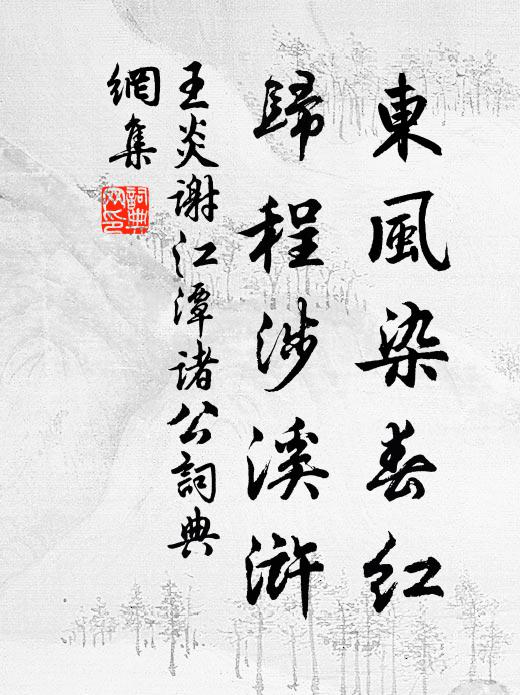 東風染春紅
歸程涉溪滸
王炎謝江潭諸公詞典
網集
詞典
网印